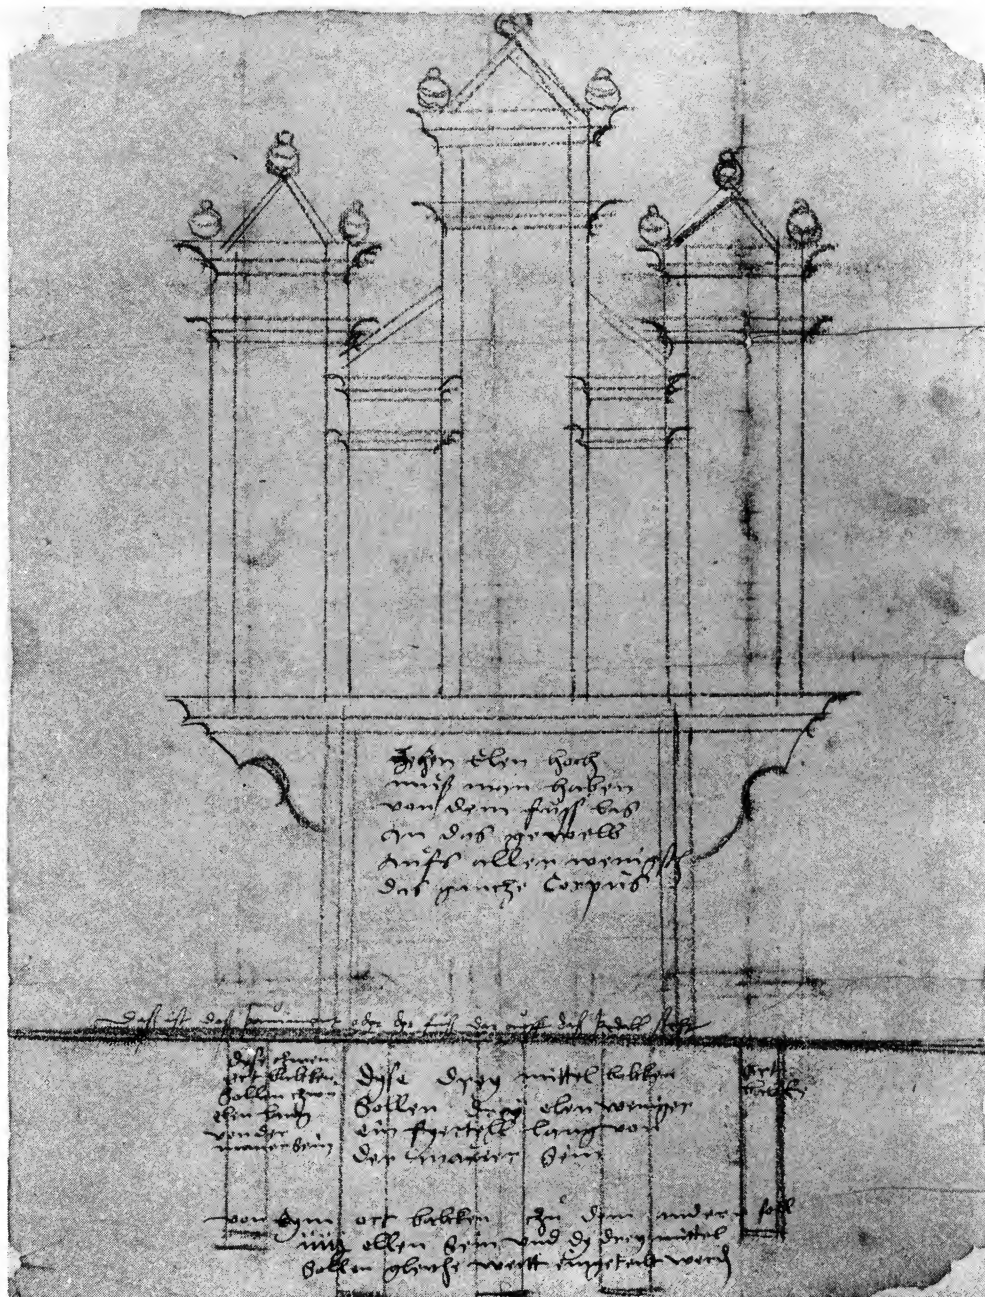 Zehen elen hoch
muß man haben
von dem fuß bis
an das gewelb
aufs allen wenigst
das gancze Corpus
das ist das oder der fuß dar auff das stett
dyse czwen
ort balcken
sollen czwo
elen lang
von der
mauer sein
dyse drey mittel balcken
sollen drey elen weniger
ein fyertell lang von
der mauer sein
ort
balcke
von eym ort balcken czu dem andern soll
ellen sein und dy drey mittel
sollen gleiche weitt eingeteilt werden